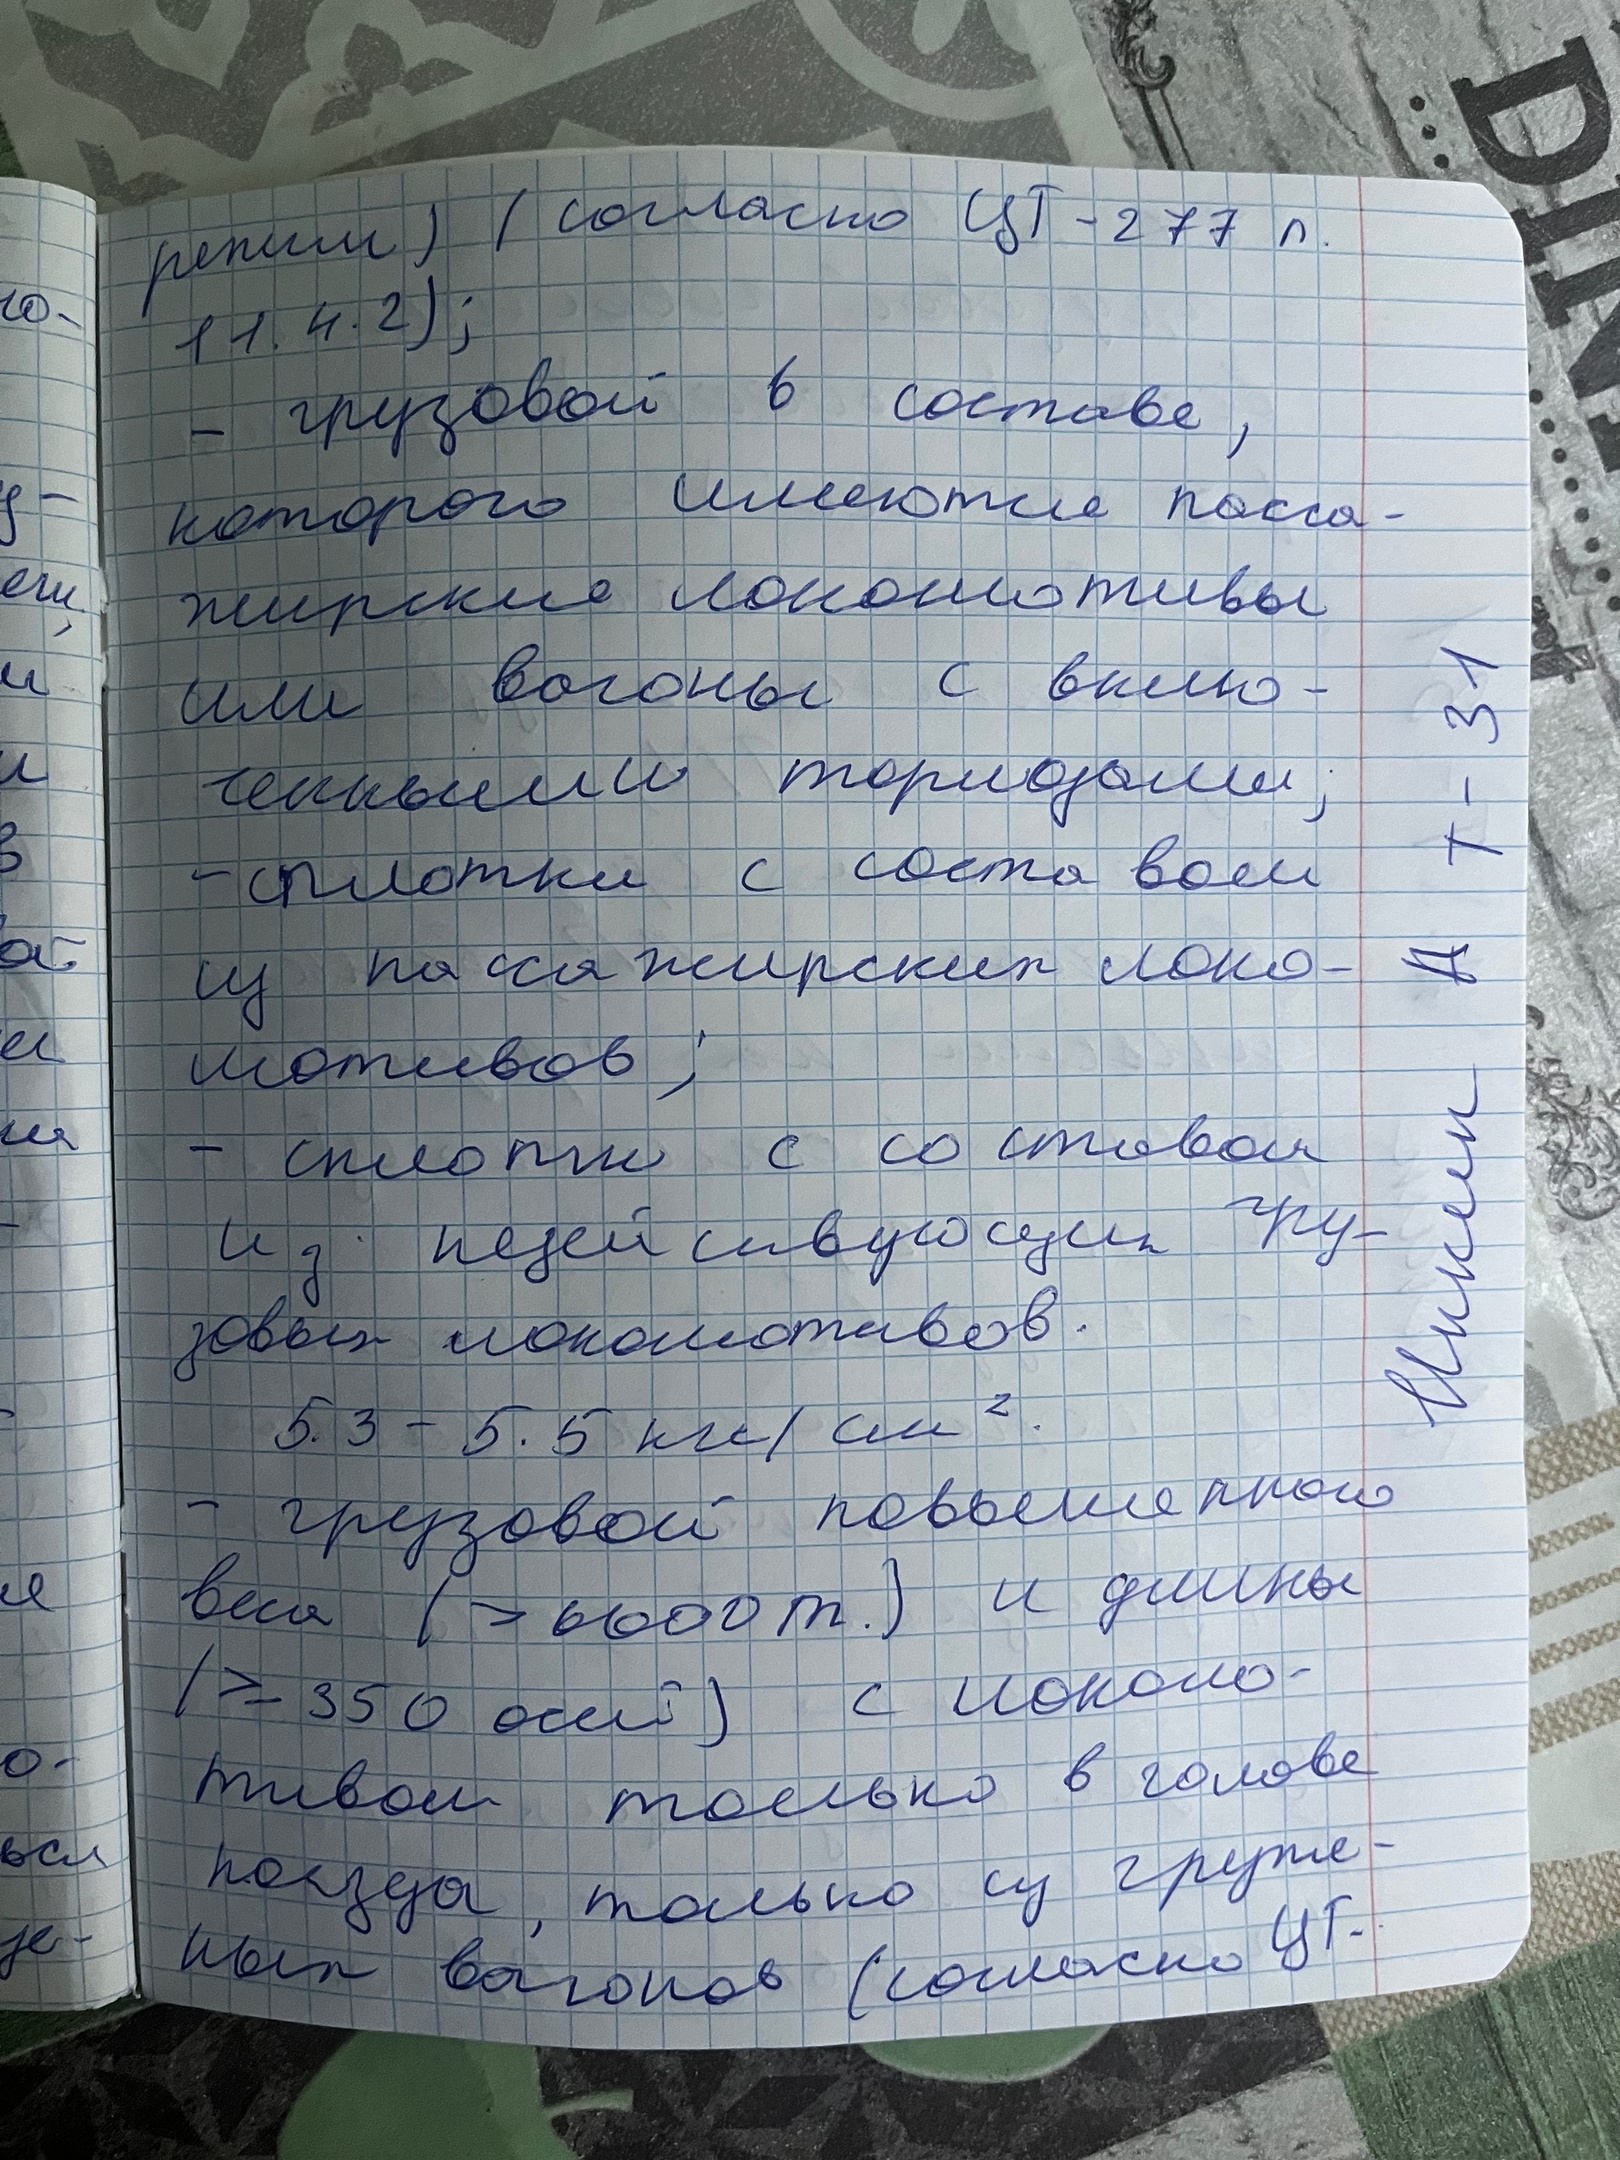 режим) (согласно ЦТ-277 п.
11.4.2);
- грузовой в составе,
которого имеются пасса-
жирские локомотивы
или вагоны с вклю-
ченными тормозами;
- сплотки с составом
из пассажирских локо-
мотивов;
- сплотки с составом
из недействующих гру-
зовых локомотивов.
5.3 - 5.5 кгс/см².
- грузовой повышенного
веса (> 6000 т.) и длины
(≥ 350 осей) с локомо-
тивом только в голове
поезда, только из груже-
ных вагонов (согласно ЦТ-
Никель Д Т-31
ю-
у-
ечи,
и
и
в
ей
ия
о-
ься
же-
DIN